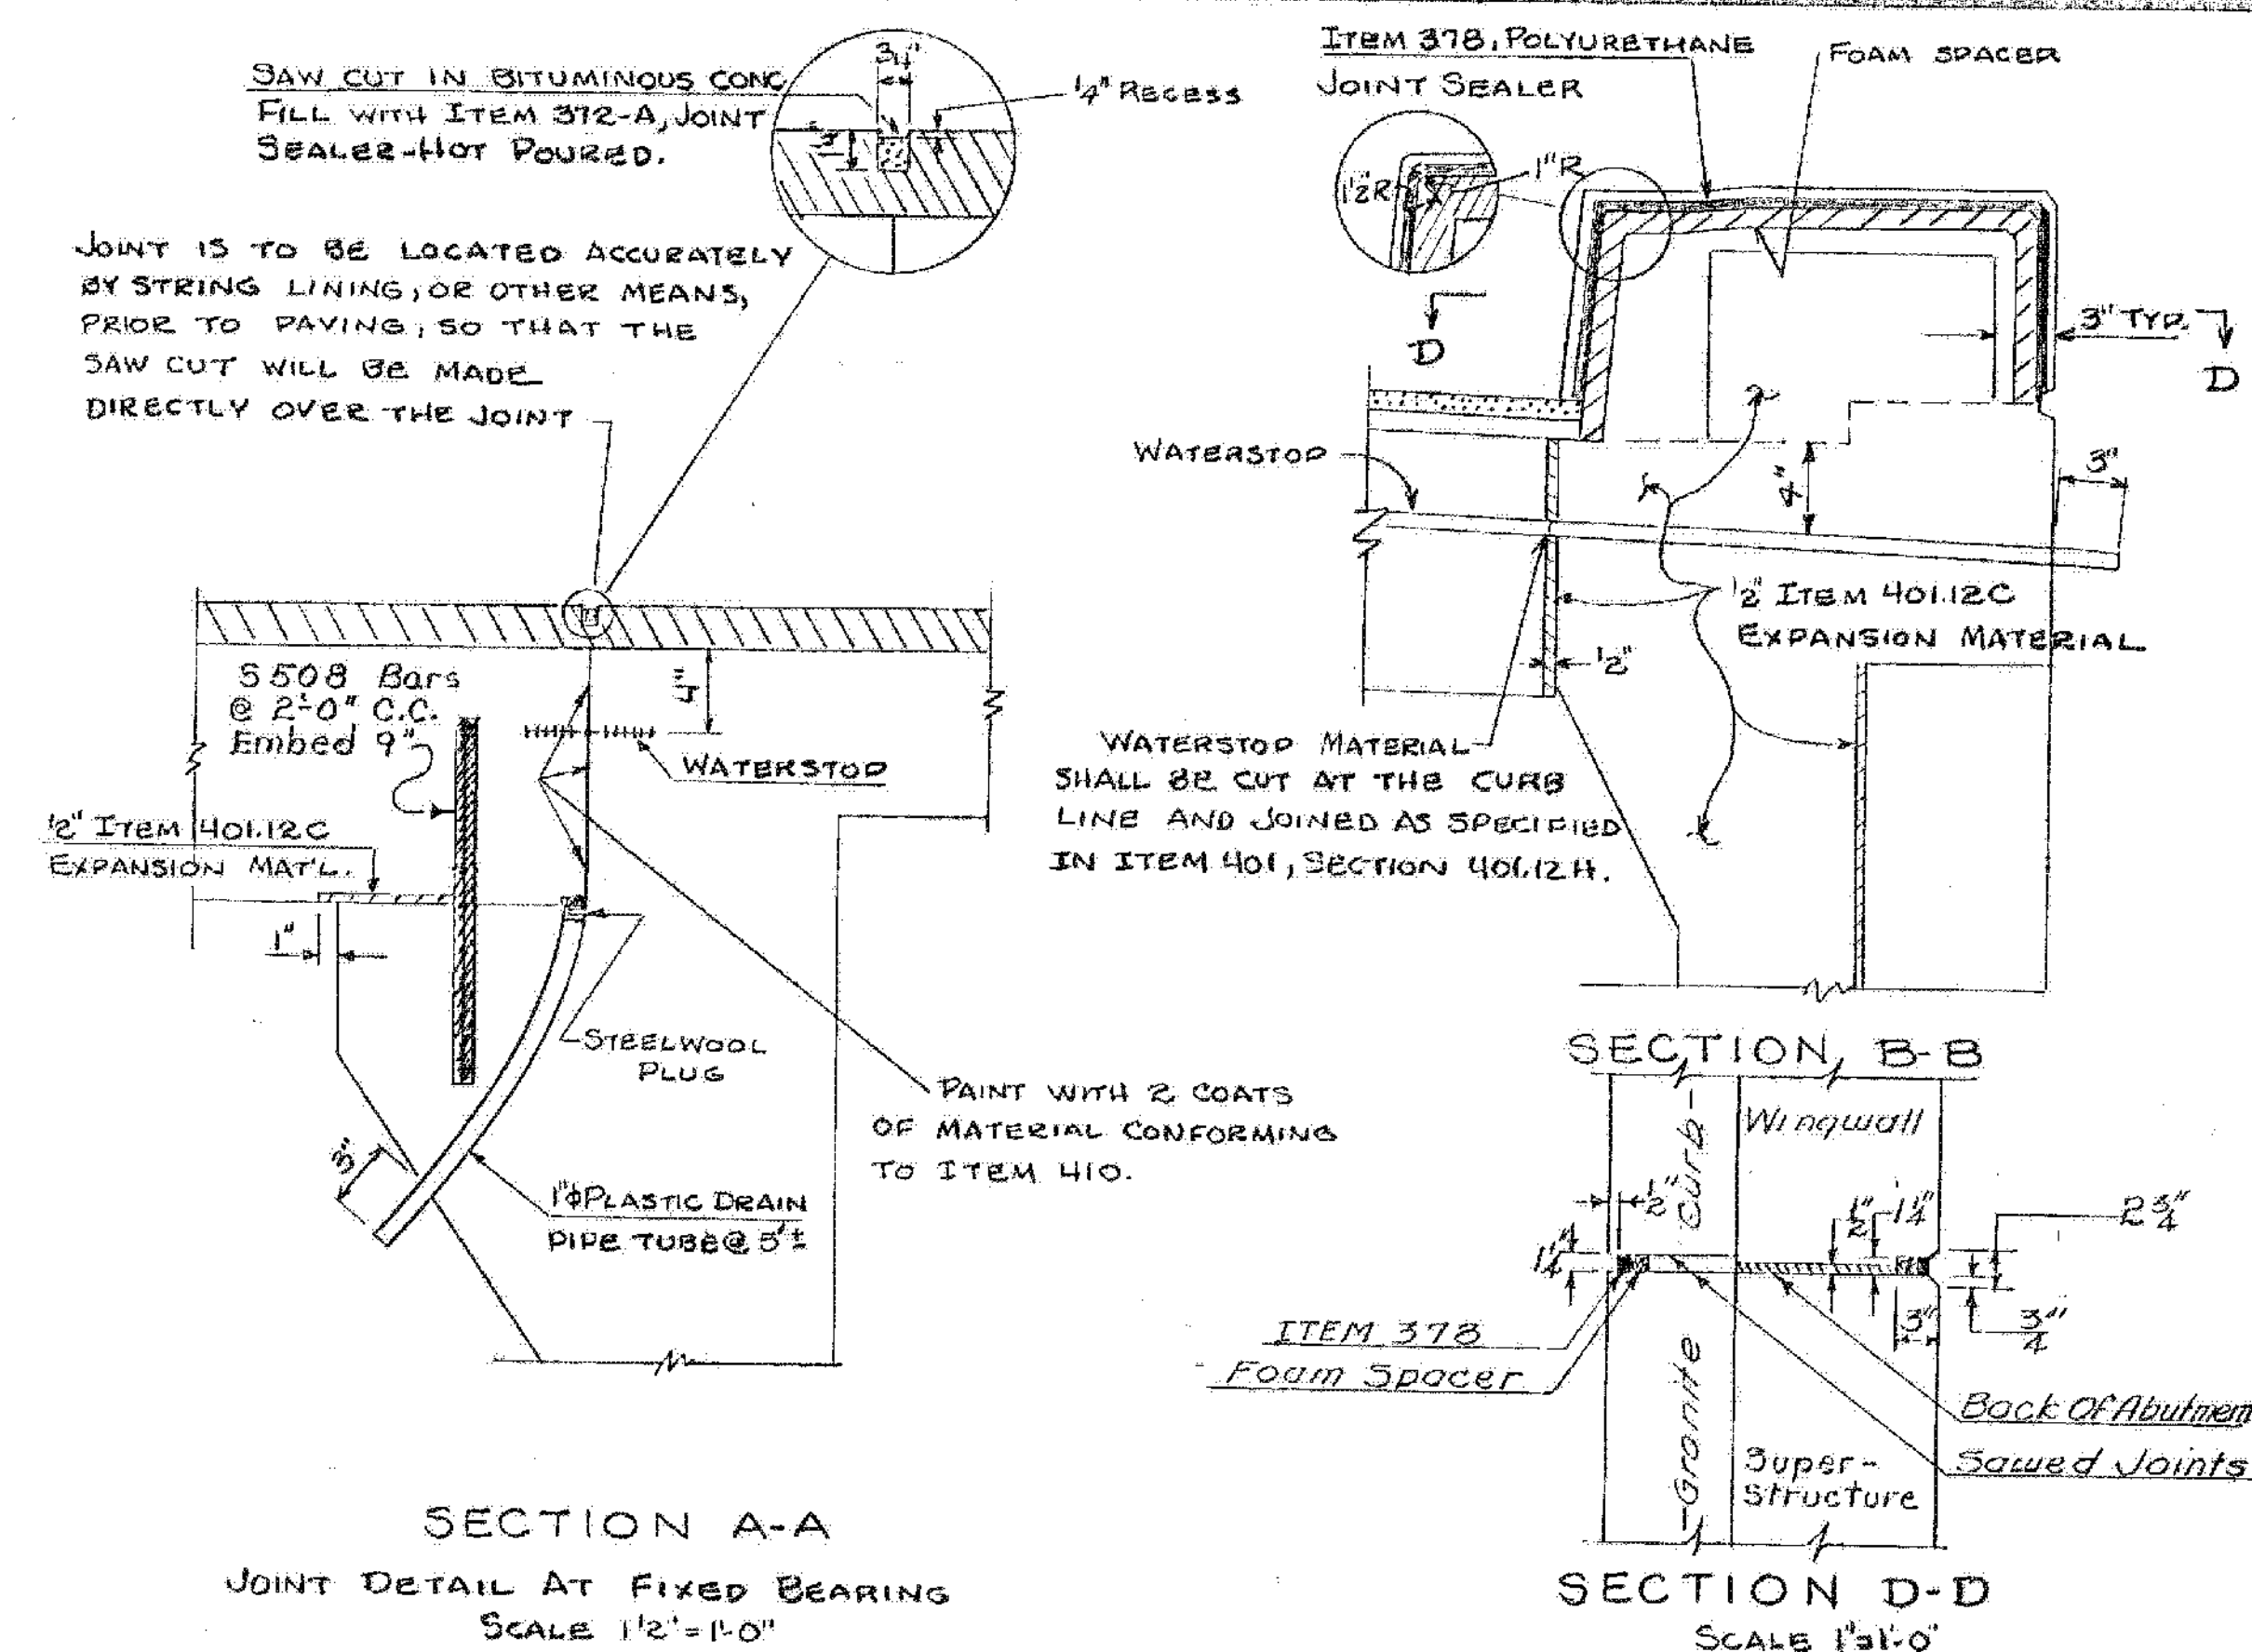 SAW CUT IN BITUMINOUS CONC
FILL WITH ITEM 372-A, JOINT
SEALER-HOT POURED.
3/4"
1/4" RECESS
JOINT IS TO BE LOCATED ACCURATELY
BY STRING LINING, OR OTHER MEANS,
PRIOR TO PAVING, SO THAT THE
SAW CUT WILL BE MADE
DIRECTLY OVER THE JOINT
S508 Bars
@ 2'-0" C.C.
Embed 9"
4"
WATERSTOP
1/2" ITEM 401.12C
EXPANSION MAT'L.
1"
STEELWOOL
PLUG
PAINT WITH 2 COATS
OF MATERIAL CONFORMING
TO ITEM 410.
3"
1"φ PLASTIC DRAIN
PIPE TUBE @ 5'±
SECTION A-A
JOINT DETAIL AT FIXED BEARING
SCALE 1 1/2" = 1'-0"
ITEM 378, POLYURETHANE
JOINT SEALER
FOAM SPACER
1 1/2"R
1"R
D
3" TYP.
D
WATERSTOP
4"
3"
1/2" ITEM 401.12C
EXPANSION MATERIAL
1/2"
WATERSTOP MATERIAL
SHALL BE CUT AT THE CURB
LINE AND JOINED AS SPECIFIED
IN ITEM 401, SECTION 401.12H.
SECTION B-B
Wingwall
-Granite Curb-
1/2"
1 1/4"
1/2"
1 1/4"
2 3/4"
3"
3/4"
ITEM 378
Foam Spacer
Back Of Abutmen
Sawed Joints
Super-
Structure
SECTION D-D
SCALE 1"=1'-0"